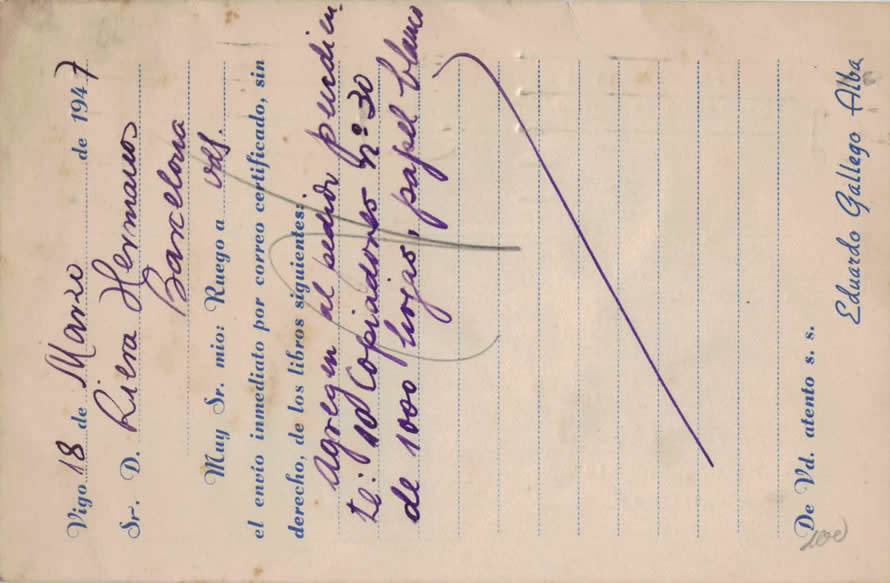 Vigo 18 de Marzo de 1947
Sr. D. Riera Hermanos
Barcelona
Muy Sr. mio: Ruego a vds.
el envío inmediato por correo certificado, sin
derecho, de los libros siguientes:
Agregen al pedido pendien
te: 10 Copiadores nº 30
de 1000 hojas, papel blanco
De Vd. atento s. s.
Eduardo Gallego Alba